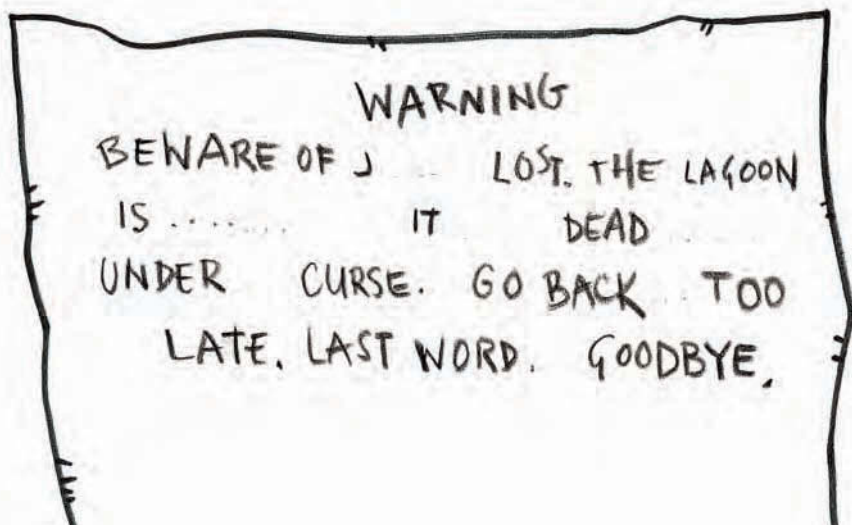 WARNING
BEWARE OF J .. LOST. THE LAGOON
IS ........ IT DEAD
UNDER CURSE. GO BACK .. TOO
LATE. LAST WORD. GOODBYE.